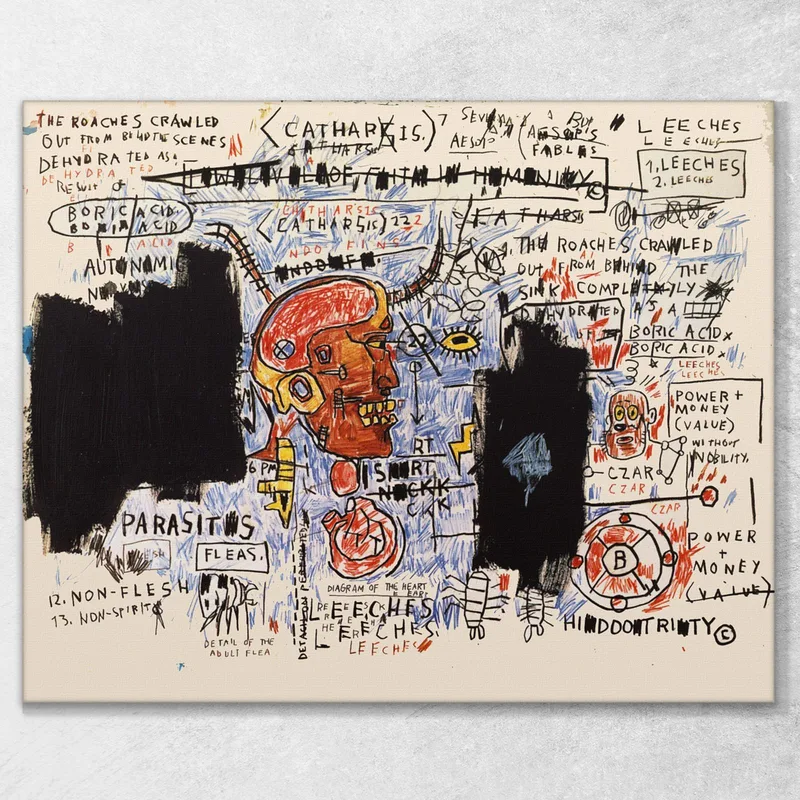 THE ROACHES CRAWLED
OUT FROM BEHIND THE SCENES
DEHYDRATED AS A
DEHYDRATED
RESULT OF
BORIC ACID.
BORIC ACID
B ACID
AUTONOMI
PARASITES
FLESH
FLEAS.
12. NON-FLESH
13. NON-SPIRIT
DETAIL OF THE
ADULT FLEA
<CATHARSIS.>
CATHARSIS
7
AESOP
(AESOP'S
FABLES
LOW LEVEL OF FAITH IN HUMANITY ©
CATHARSIS
<CATHARSIS> 222
CATHARSIS
LEECHES
LEECHES
1. LEECHES
2. LEECHES
THE ROACHES CRAWLED
OUT FROM BEHIND THE
SINK COMPLETELY
DEHYDRATED AS A
OF BORIC ACID
BORIC ACID
LEECHES
LEECHES
POWER +
MONEY
(VALUE)
WITHOUT
NOBILITY.
CZAR
CZAR
CZAR
POWER
+
MONEY
(VALUE)
B
HINDOO TRINITY ©
6 PM
RT
SHIRT
NECK
DETACH ON PERFORATED
DIAGRAM OF THE HEART
LEECHES
LEECHES.
LEECHES